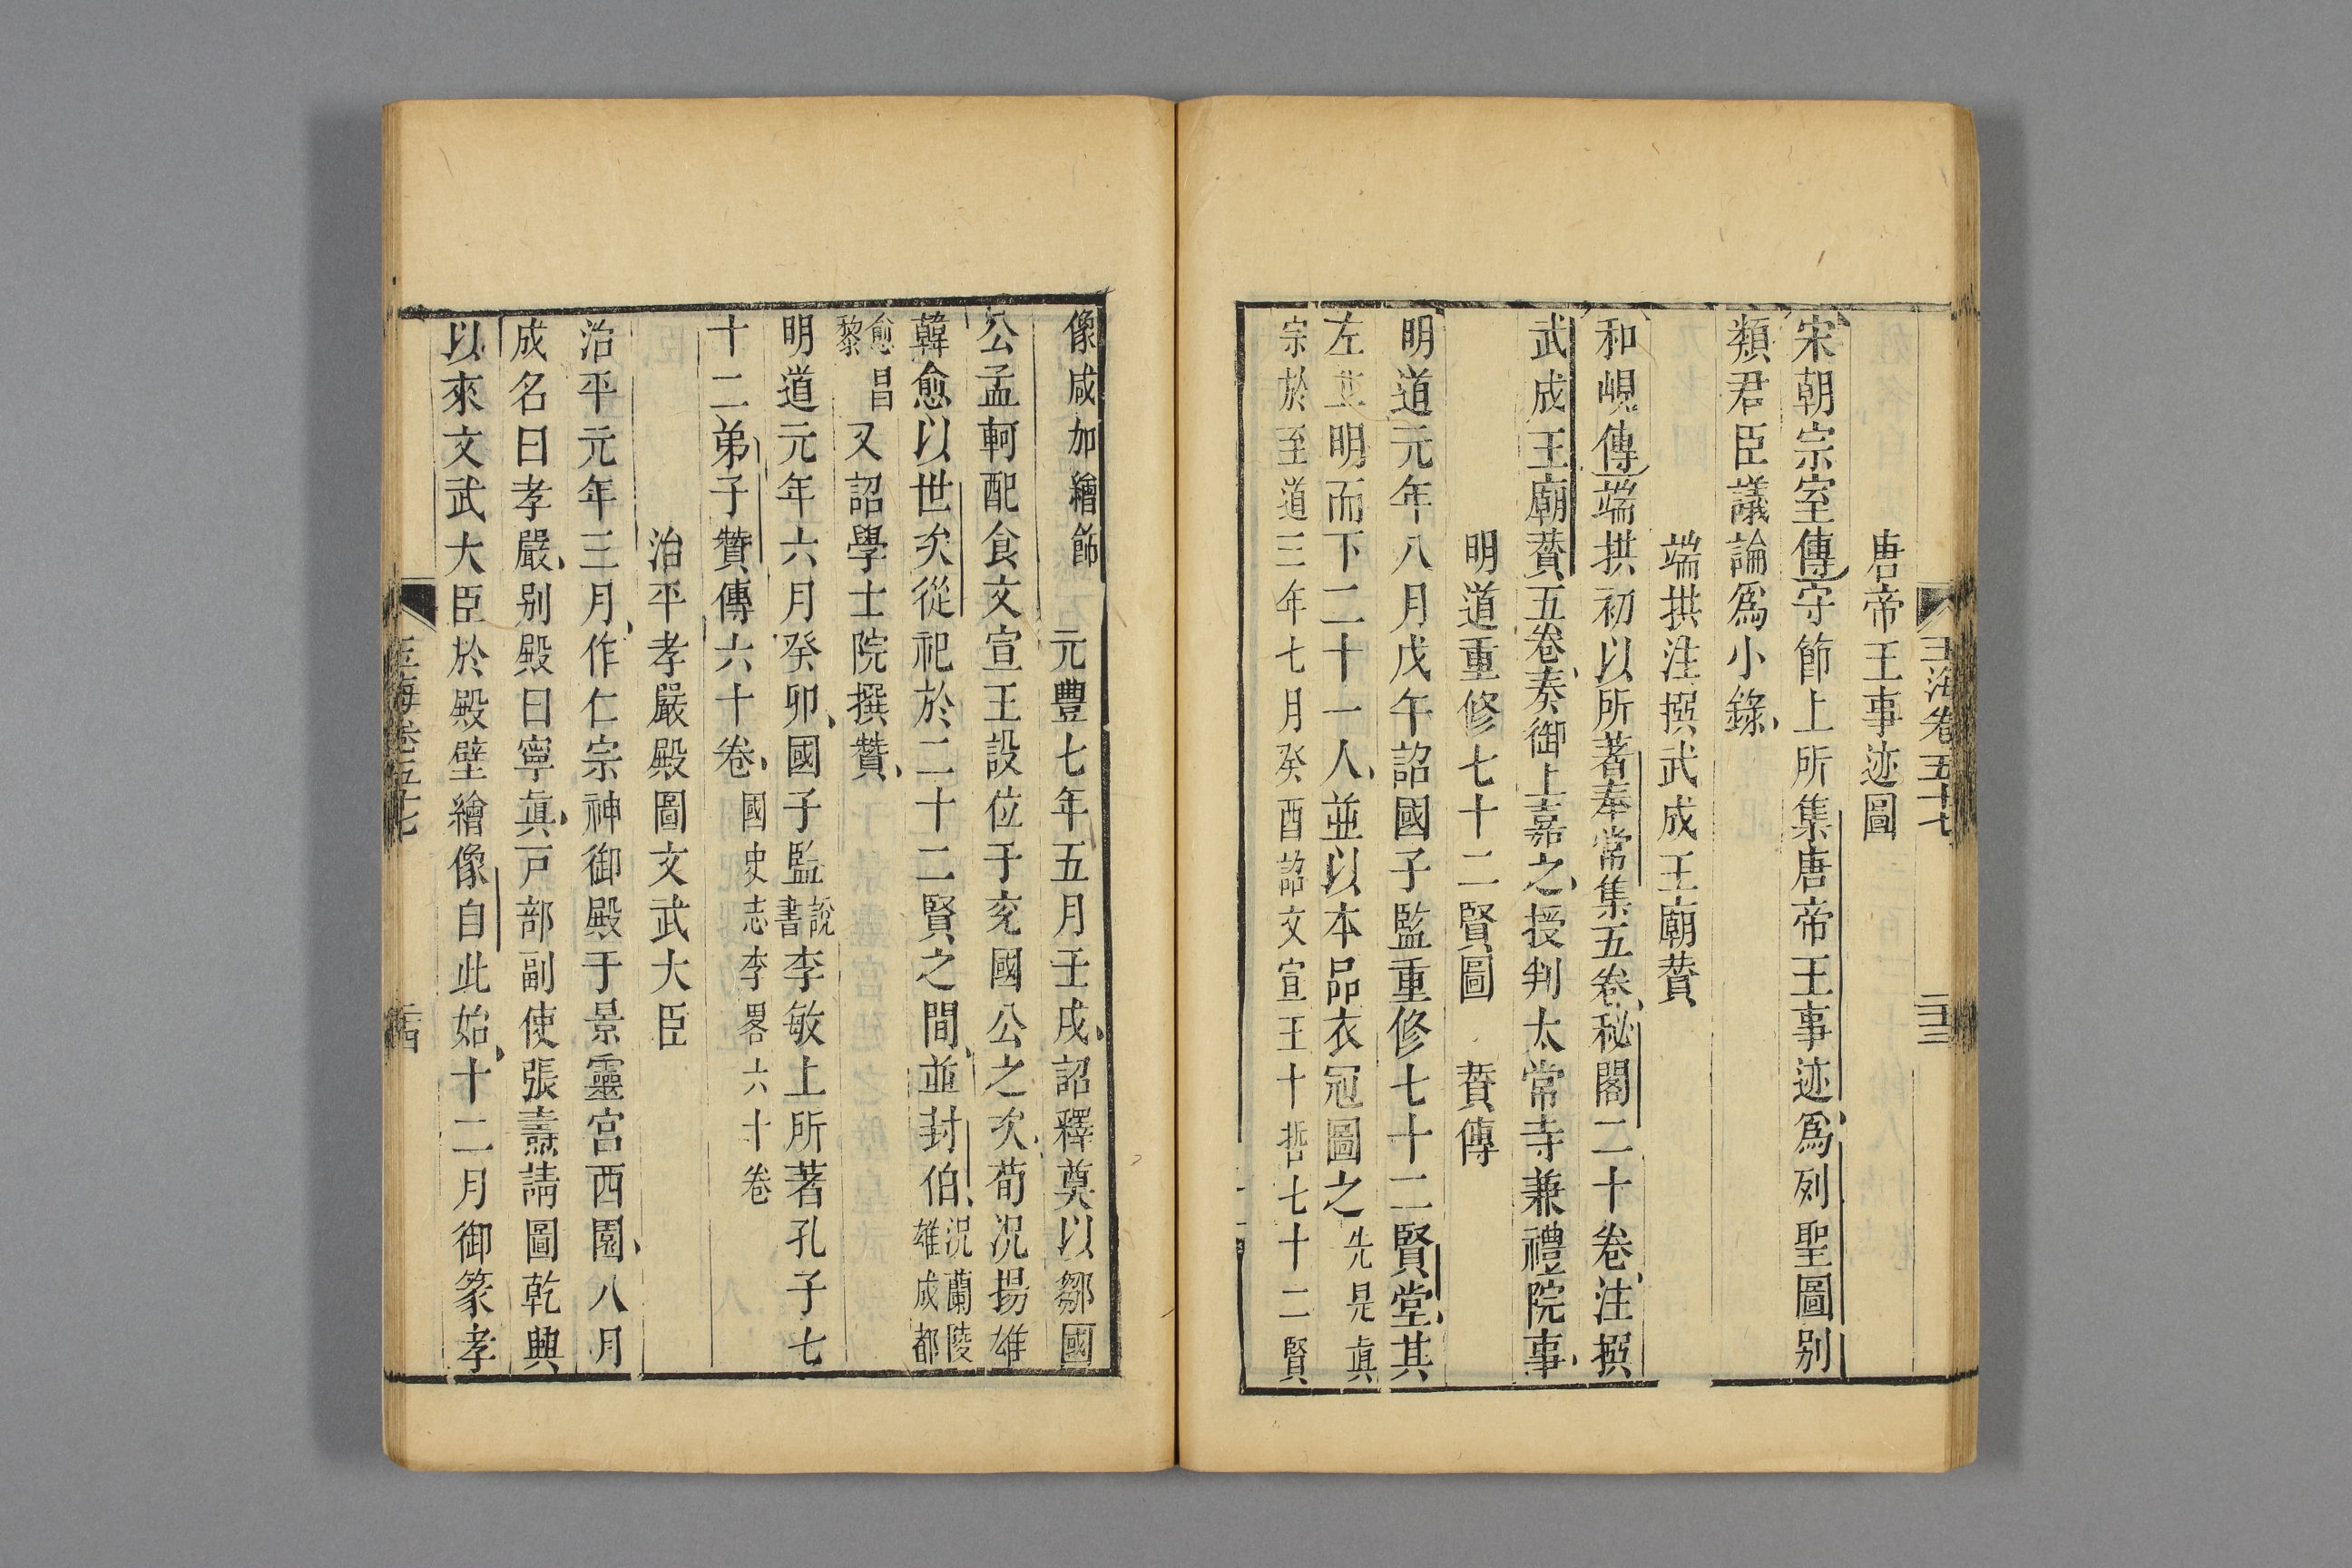 玉海卷五十七 二十三
唐帝王事迹圖
宋朝宗室傳守節上所集唐帝王事迹爲列聖圖别
類君臣議論爲小錄
端拱注撰武成王廟賛
和峴傳端拱初以所著奉常集五卷秘閣二十卷注撰
武成王廟賛五卷奏御上嘉之授判太常寺兼禮院事
明道重修七十二賢圖 賛傳
明道元年八月戊午詔國子監重修七十二賢堂其
左丘明而下二十一人並以本品衣冠圖之 先是真
宗於至道三年七月癸酉詔文宣王十哲七十二賢
像咸加繪飾 元豐七年五月壬戌詔釋奠以鄒國
公孟軻配食文宣王設位于兖國公之次荀況揚雄
韓愈以世次從祀於二十二賢之間並封伯 況蘭陵 雄成都
愈昌 黎 又詔學士院撰贊
明道元年六月癸卯國子監說書李敏上所著孔子七
十二弟子贊傳六十卷 國史志李畧六十卷
治平孝嚴殿圖文武大臣
治平元年三月作仁宗神御殿于景靈宮西園八月
成名曰孝嚴别殿曰寧真戸部副使張壽請圖乾興
以來文武大臣於殿壁繪像自此始十二月御篆孝
玉海卷五十七 二十四